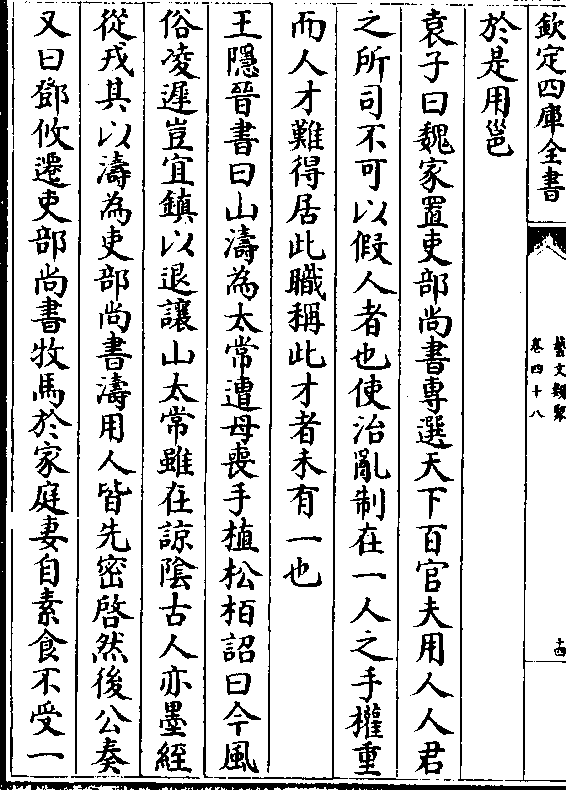 欽定四庫全書
藝文類聚
卷四十八
十四
於是用邕
袁子曰魏家置吏部尚書專選天下百官夫用人人君
之所司不可以假人者也使治亂制在一人之手權重
而人才難得居此職稱此才者未有一也
王隱晉書曰山濤為太常遭母喪手植松栢詔曰今風
俗凌遲豈宜鎮以退讓山太常雖在諒陰古人亦墨絰
從戎其以濤為吏部尚書濤用人皆先密啓然後公奏
又曰鄧攸遷吏部尚書牧馬於家庭妻自素食不受一